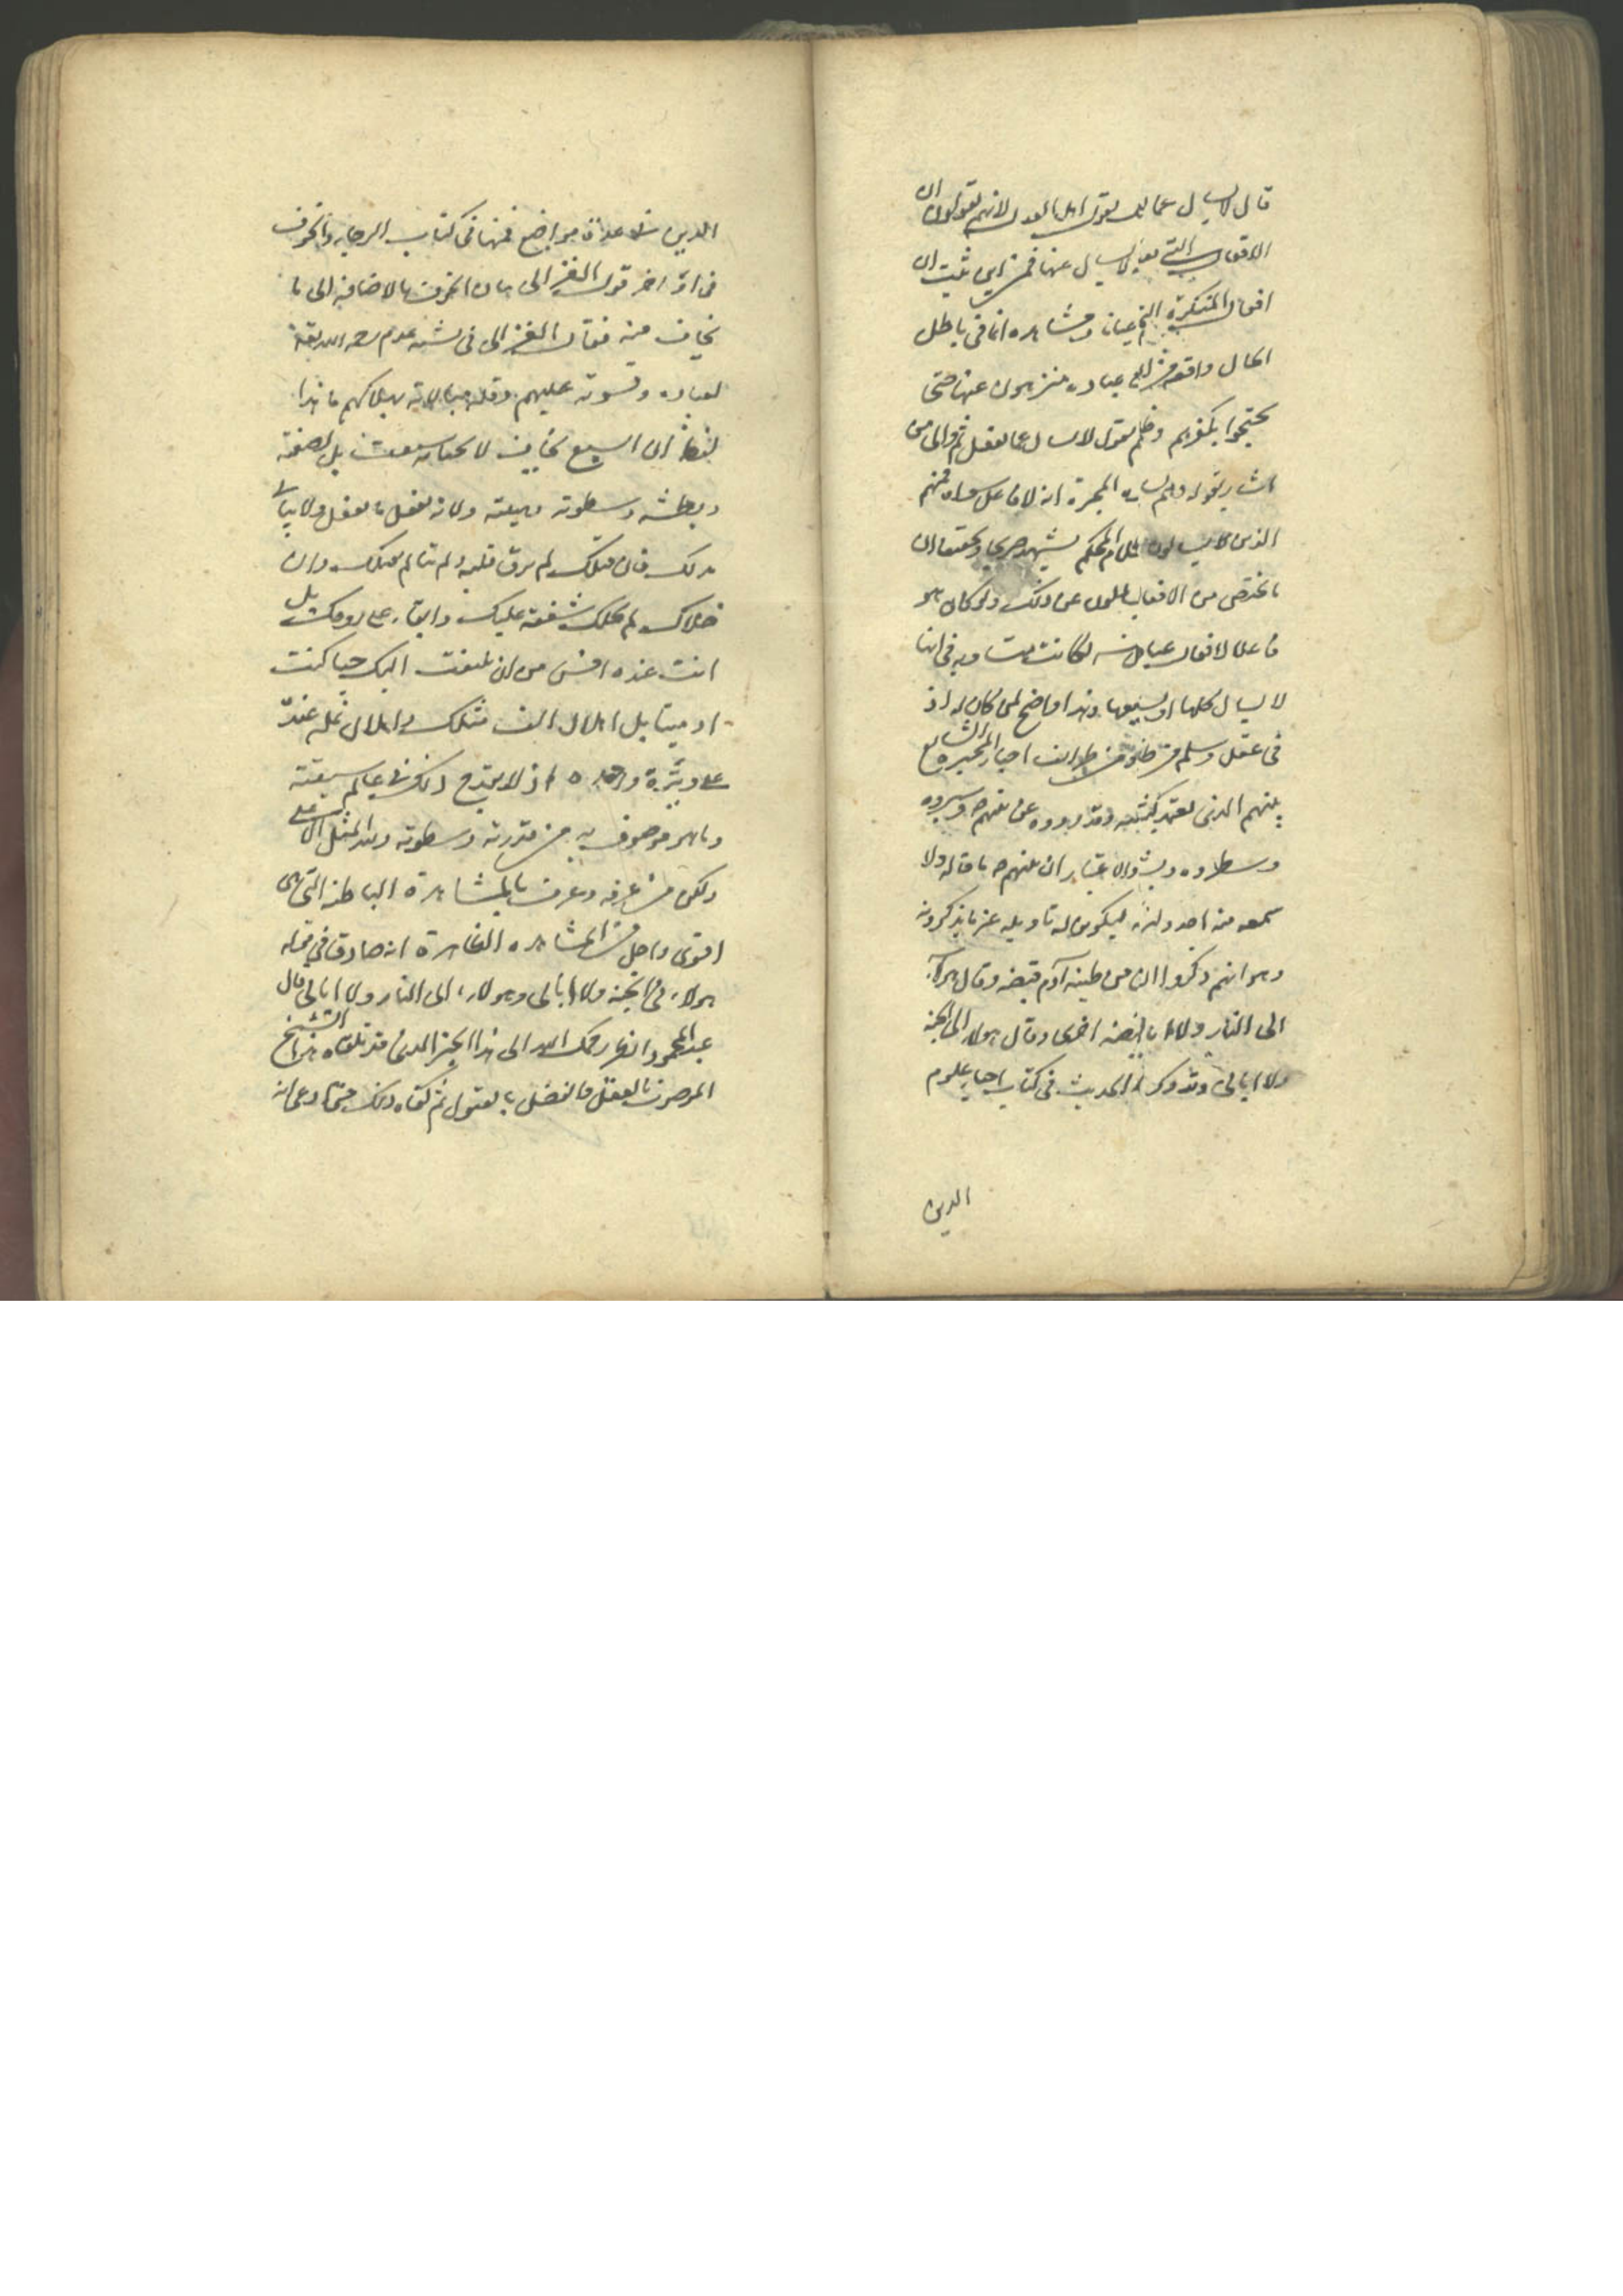 قال لا يسال عما يفعل يقول اهل العدل لانهم يقولون ان
الافعال التي لا يسال عنها فمن اين ثبت ان
افعال المنكرة التي عيانا ومشاهدة انها في باطل
الحال واقعة من عباده منزهون عنها حتى
يحتجوا بكفرهم وظلمهم بقول لا يسال عما يفعل ثم والى من
اشار بقوله وهم يسالون المجبرة انه لا فاعل سواه فمنهم
الذين لا يسالون الكلام المحكم يشهد صريحا وتحقيقا ان
ما يختص من الافعال يسالون عن ذلك ولو كان هو
فاعلا لافعال عباده لكانت متساوية في انها
لا يسال كلها او جميعها وهذا واضح لمن كان له اذن
في عقل وسلم من ظلم ومن طرائف اخبار المجبرة الشايع
بينهم الذي يعتمد وقد رووه عن نبيهم وسيروه
وسطروه ويشهد الاعتبار ان نبيهم ما قاله ولا
سمعه منه احد ولانه ليكون له تاويله غير ما يذكرونه
وهو انهم ذكروا ان من طينة آدم قبضة وقال هولاء
الى النار ولا ابالي وقبضة اخرى وقال هولاء الى الجنة
ولا ابالي وقد ذكر الحديث في كتاب احياء علوم
الدين
الدين في عدة مواضع فمنها في كتاب الرجاء والخوف
في اواخر قول الغزالي بيان الخوف بالاضافة الى ما
يخاف منه فقال الغزالي في شدة عدم رحمة الله بقية
لعباده وقسوته عليهم وقلة مبالاته بهلاكهم ما هذا
لفظه ان السبع يخاف لا لجناية سبقت بل لصفته
وبطشه وسطوته وهيبته ولانه يفعل ما يفعل ولا يبالي
بذلك فان قتلك لم يرق قلبه ولم يتالم بقتلك وان
خلاك لم يخلك شفقة عليك وابقاء على روحك بل
انت عنده اخس من ان يلتفت اليك حيا كنت
او ميتا بل اهلاك الف مثلك واهلاك نملة عنده
على وتيرة واحدة اذ لا يقدح ذلك في عالم سبعيته
وما هو موصوف به من قدرته وسطوته ولله المثل الاعلى
ولكن من عرفه وعرف بالمشاهدة الباطنة التي هي
اقوى واجل من المشاهدة الظاهرة انه صادق في قوله
هولاء في الجنة ولا ابالي وهولاء الى النار ولا ابالي قال
عبد المحمود انظر رحمك الله الى هذا الخبر الذي قد تلقاه هذا الشيخ
الموصوف بالعقل والفضل بالقبول ثم كفاه ذلك حتى ادعى انه